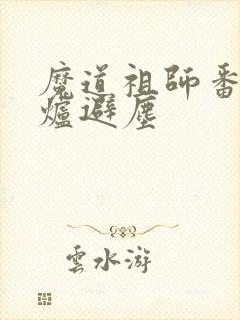 魔道祖師番
爐避塵
雲水游